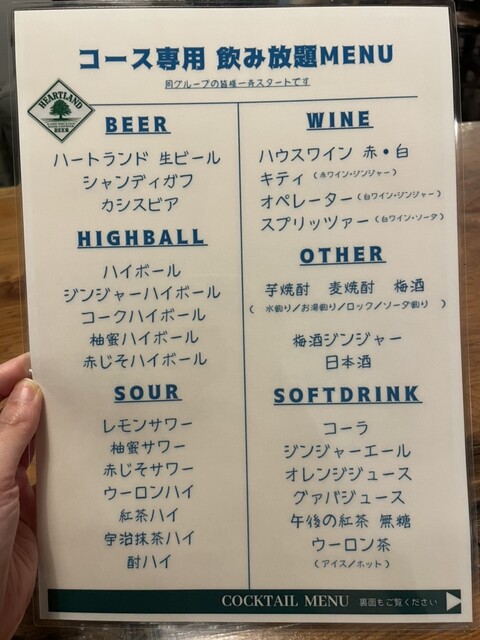 コース専用 飲み放題MENU
同グループの皆様一斉スタートです
HEARTLAND
BEER
BEER
ハートランド 生ビール
シャンディガフ
カシスビア
HIGHBALL
ハイボール
ジンジャーハイボール
コークハイボール
柚蜜ハイボール
赤じそハイボール
SOUR
レモンサワー
柚蜜サワー
赤じそサワー
ウーロンハイ
紅茶ハイ
宇治抹茶ハイ
酎ハイ
WINE
ハウスワイン 赤・白
キティ（赤ワイン・ジンジャー）
オペレーター（白ワイン・ジンジャー）
スプリッツァー（白ワイン・ソーダ）
OTHER
芋焼酎 麦焼酎 梅酒
（ 水割り/お湯割り/ロック/ソーダ割り ）
梅酒ジンジャー
日本酒
SOFTDRINK
コーラ
ジンジャーエール
オレンジジュース
グァバジュース
午後の紅茶 無糖
ウーロン茶
（アイス/ホット）
COCKTAIL MENU 裏面もご覧ください